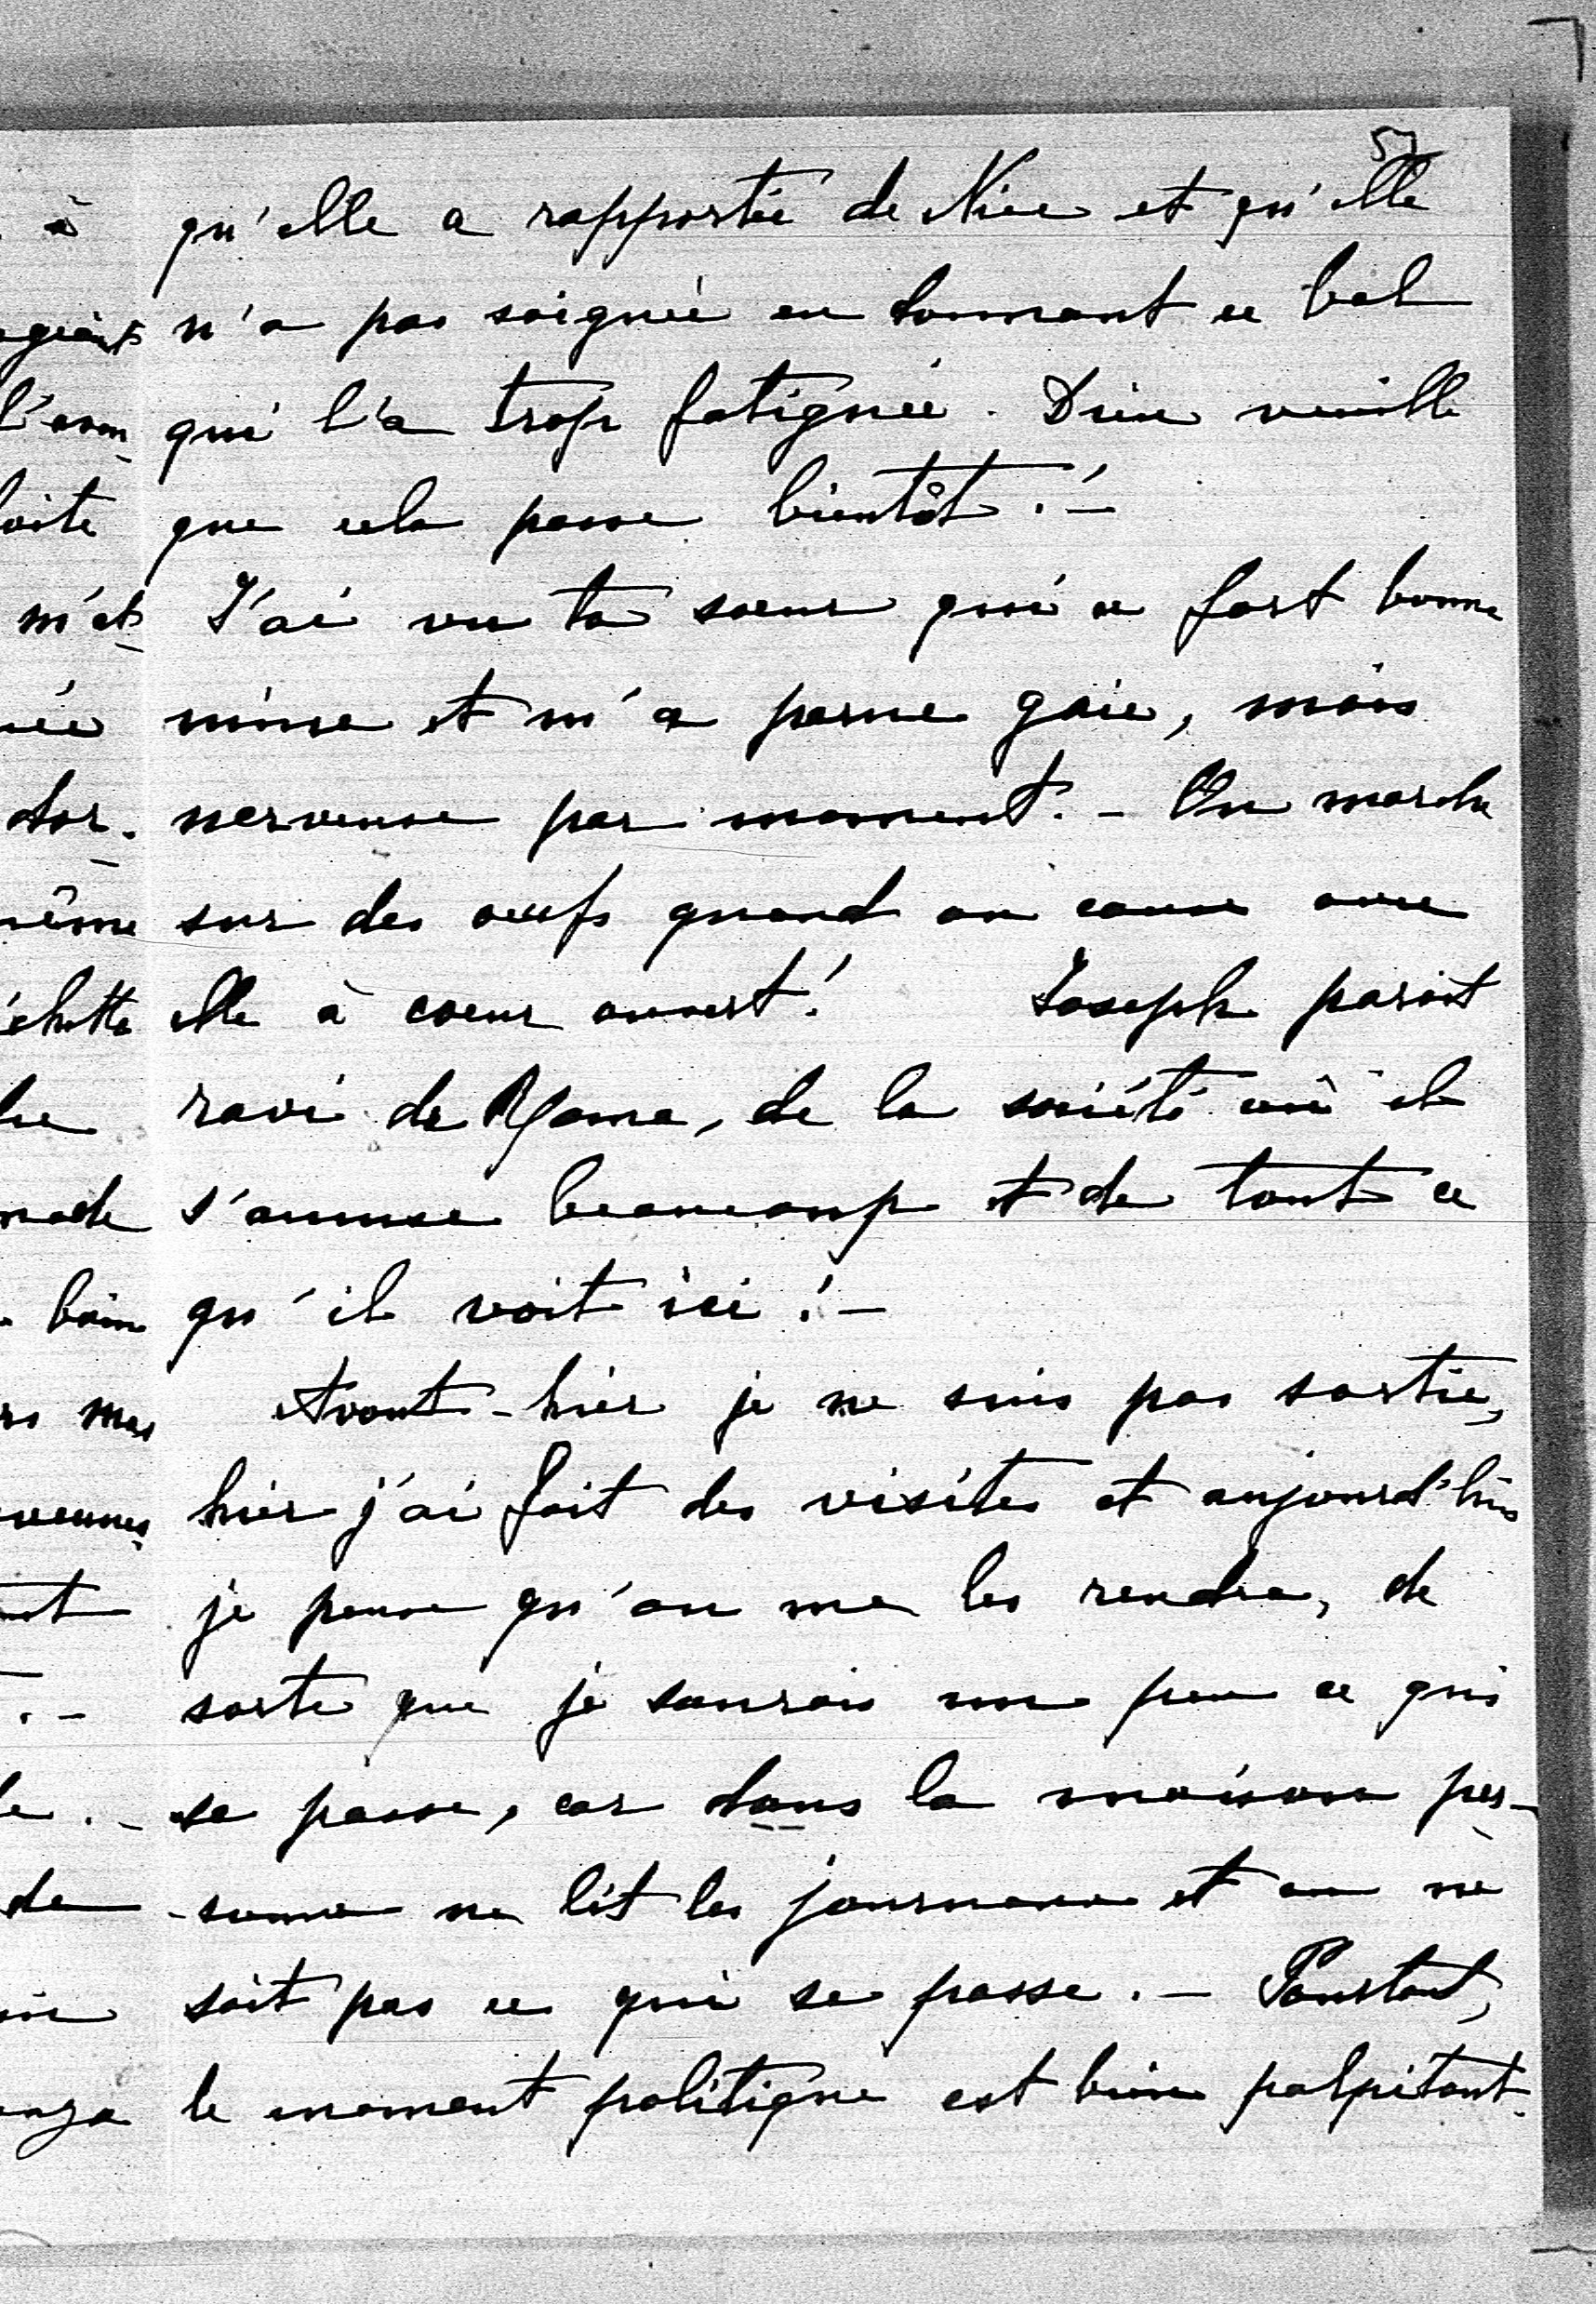 57
qu'elle a rapportée de Nice et qu'elle
n'a pas soignée en donnant ce bal
qui l'a trop fatiguée. Dieu veuille
que cela passe bientôt !-
J'ai vu ta soeur qui a fort bonne
mine et m'a parue gaie, mais
nerveuse par moment. - On marche
sur des oeufs quand on cause avec
elle à coeur ouvert ! Joseph parait
ravi de Rome, de la société où il
s'amuse beaucoup et de tout ce
qu'il voit ici !-
Avant-hier je ne suis pas sortie,
hier j'ai fait des visites et aujourd'hui
je pense qu'on me les rendra, de
sorte que je saurais un peu ce qui
se passe, car dans la maison per-
-sonne ne lit les journaux et on ne
sait pas ce qui se passe. - Pourtant,
le moment politique est bien palpitant.